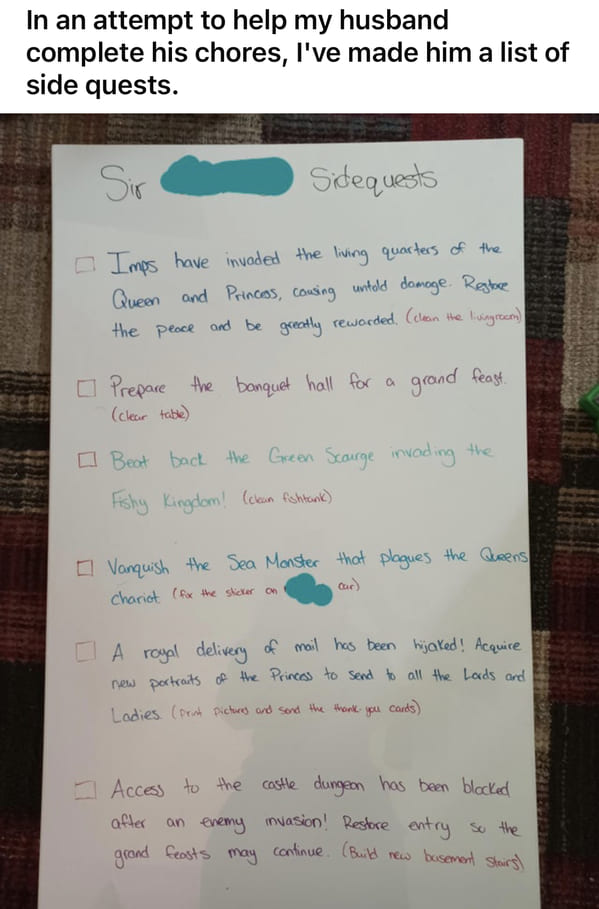 In an attempt to help my husband
complete his chores, I've made him a list of
side quests.
Sir Sidequests
Imps have invaded the living quarters of the
Queen and Princess, causing untold damage. Restore
the peace and be greatly rewarded. (clean the livingroom)
Prepare the banquet hall for a grand feast.
(clear table)
Beat back the Green Scourge invading the
Fishy Kingdom! (clean fishtank)
Vanquish the Sea Monster that plagues the Queens
chariot (fix the sticker on car)
A royal delivery of mail has been hijaked! Acquire
new portraits of the Princess to send to all the Lords and
Ladies. (print pictures and send the thank-you cards)
Access to the castle dungeon has been blocked
after an enemy invasion! Restore entry so the
grand feasts may continue. (Build new basement stairs)